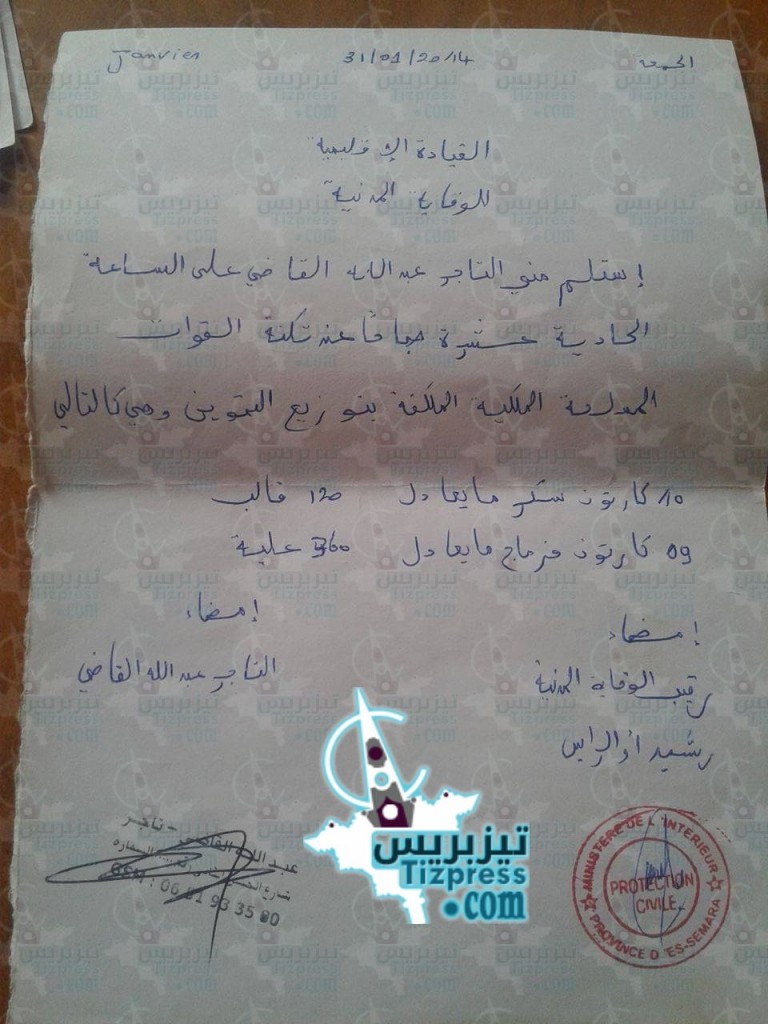 الجمعة 31/01/2014 Janvier
القيادة الإقليمية
للوقاية المدنية
إستلم مني التاجر عبد الله القاضي على الساعة
الحادية عشرة صباحا عند ثكنة القوات
المساعدة الملكية المكلفة بتوزيع التموين وهي كالتالي
10 كارتون سكر مايعادل 120 قالب
09 كارتون فرماج مايعادل 360 علبة
إمضاء
التاجر عبد الله القاضي
إمضاء
رقيب الوقاية المدنية
رشيد أو الرايس
عبد الله القاضي - تاجر
شارع
GSM : 06 61 93 35 00
تيزبريس
Tizpress
.com
MINISTERE DE L'INTERIEUR
PROTECTION
CIVILE
PROVINCE D'ES-SEMARA